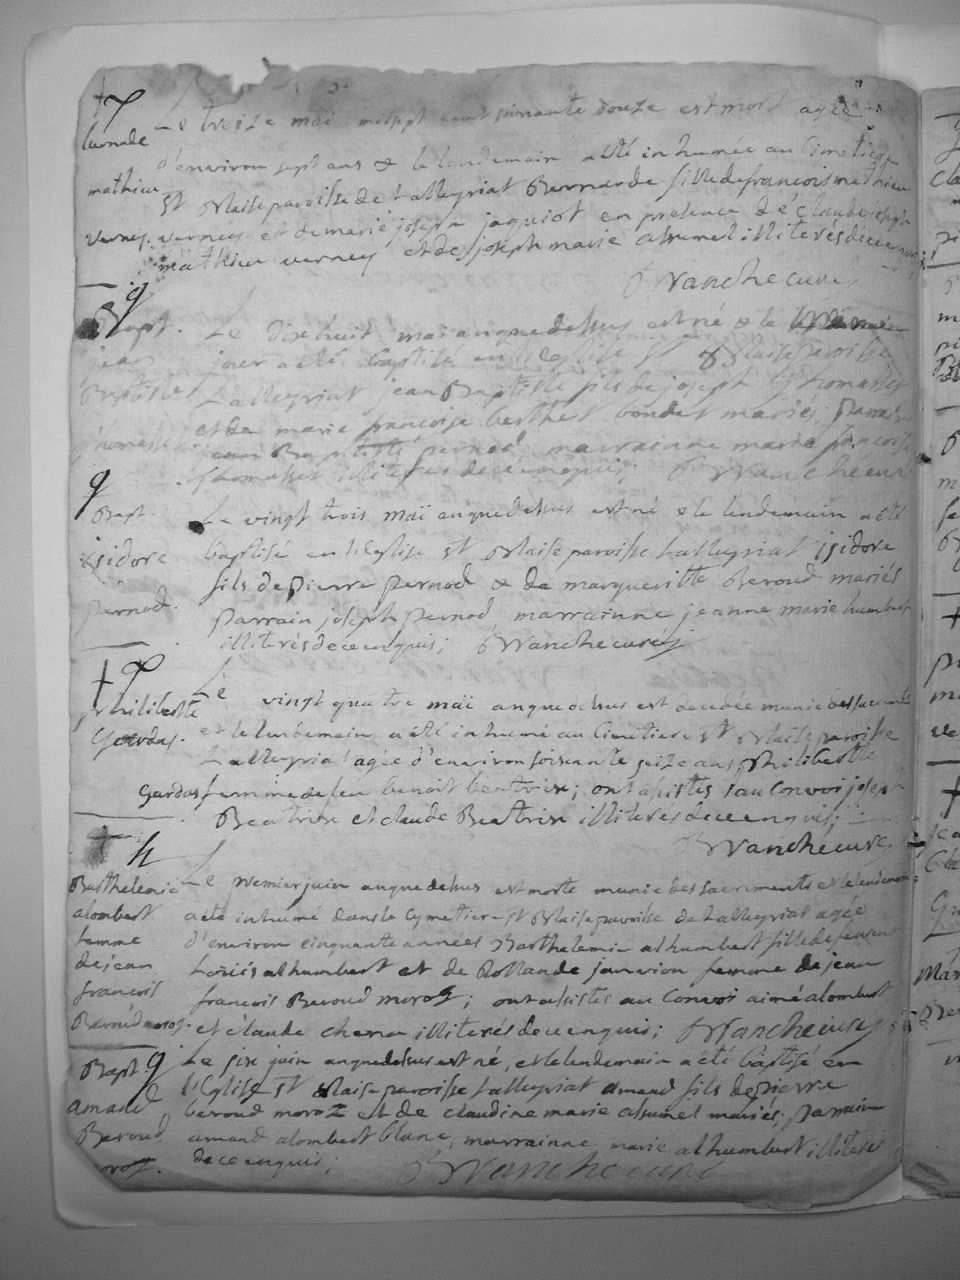 † 7
Bernarde
mathieu
verney.
Le treize mai mil sept cent soixante douze est mort agée
d'environ sept ans & le lendemain a été inhumée au Cimetiere
St Blaise paroisse de Lalleyriat Bernarde fille de francois mathieu
verney et de marie joseph jaquiot en presence de claude joseph
mathieu verney et de joseph marie alsumel illiterés de ce enquis
Vranche curé
9
Bapt.
jean
Baptiste
thomasset
Le Dix huit mai anque dessus est né & le
jour a été baptisé en l'eglise St Blaise paroisse
Lalleyriat jean Baptiste fils de joseph thomasset
et de marie francoise berthet bondet mariés; Parrain
jean Baptiste pernod, marrainne marie francoise
thomasset illiterés de ce enquis; Vranche curé
9
Bapt.
isidore
pernod.
Le vingt trois maï anque dessus est né & le lendemain a été
Baptisé en l'Eglise St Blaise paroisse Lalleyriat isidore
fils de pierre pernod & de margueritte Beroud mariés
parrain joseph pernod, marrainne jeanne marie humbert
illiterés de ce enquis; Vranche curé
† 7
philiberte
Gardas.
Le vingt quatre maï anque dessus est decedée munie des sacrements
et le lendemain a été inhumé au Cimetiere St Blaise paroisse
Lalleyriat agée d'environ soixante seize ans philiberte
Gardas femme de feu benoit beatrix; ont assistés au Convoi joseph
Beatrix et claude Beatrix illiterés de ce enquis;
Vranche curé
† H
Barthelemie
alombert
femme
de jean
francois
Beroud moroz.
Le premier juin anque dessus est morte munie des sacrements et le lendemain
a été inhumé dans le Cymetiere St Blaise paroisse de Lalleyriat agée
d'environ cinquante années Barthelemie alhumbert fille de feu
alhumbert et de Rollande janvion femme de jean
francois Beroud moroz; ont assistés au Convoi aimé alombert
et claude chena illiterés de ce enquis; Vranche curé
Bapt 9
amand
Beroud
moroz.
Le six juin anque dessus est né, et le lendemain a été baptisé en
l'Eglise St Blaise paroisse Lalleyriat amand fils de pierre
beroud moroz et de claudine marie alsumel mariés; parrain
amand alombert blanc; marrainne marie alhumbert illiterés
de ce enquis; Vranche curé